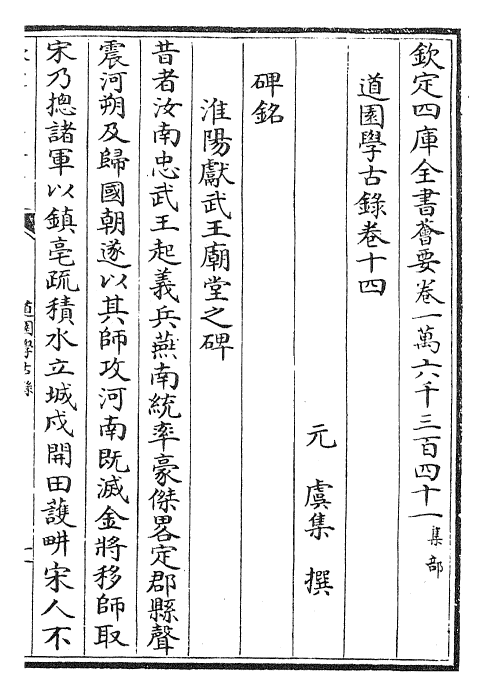 欽定四庫全書薈要卷一萬六千三百四十一集部
道園學古錄卷十四
元　虞集　撰
碑銘
淮陽獻武王廟堂之碑
昔者汝南忠武王起義兵燕南統率豪傑畧定郡縣聲
震河朔及歸國朝遂以其師攻河南既滅金將移師取
宋乃摠諸軍以鎮亳疏積水立城戍開田護畊宋人不
道園學古錄